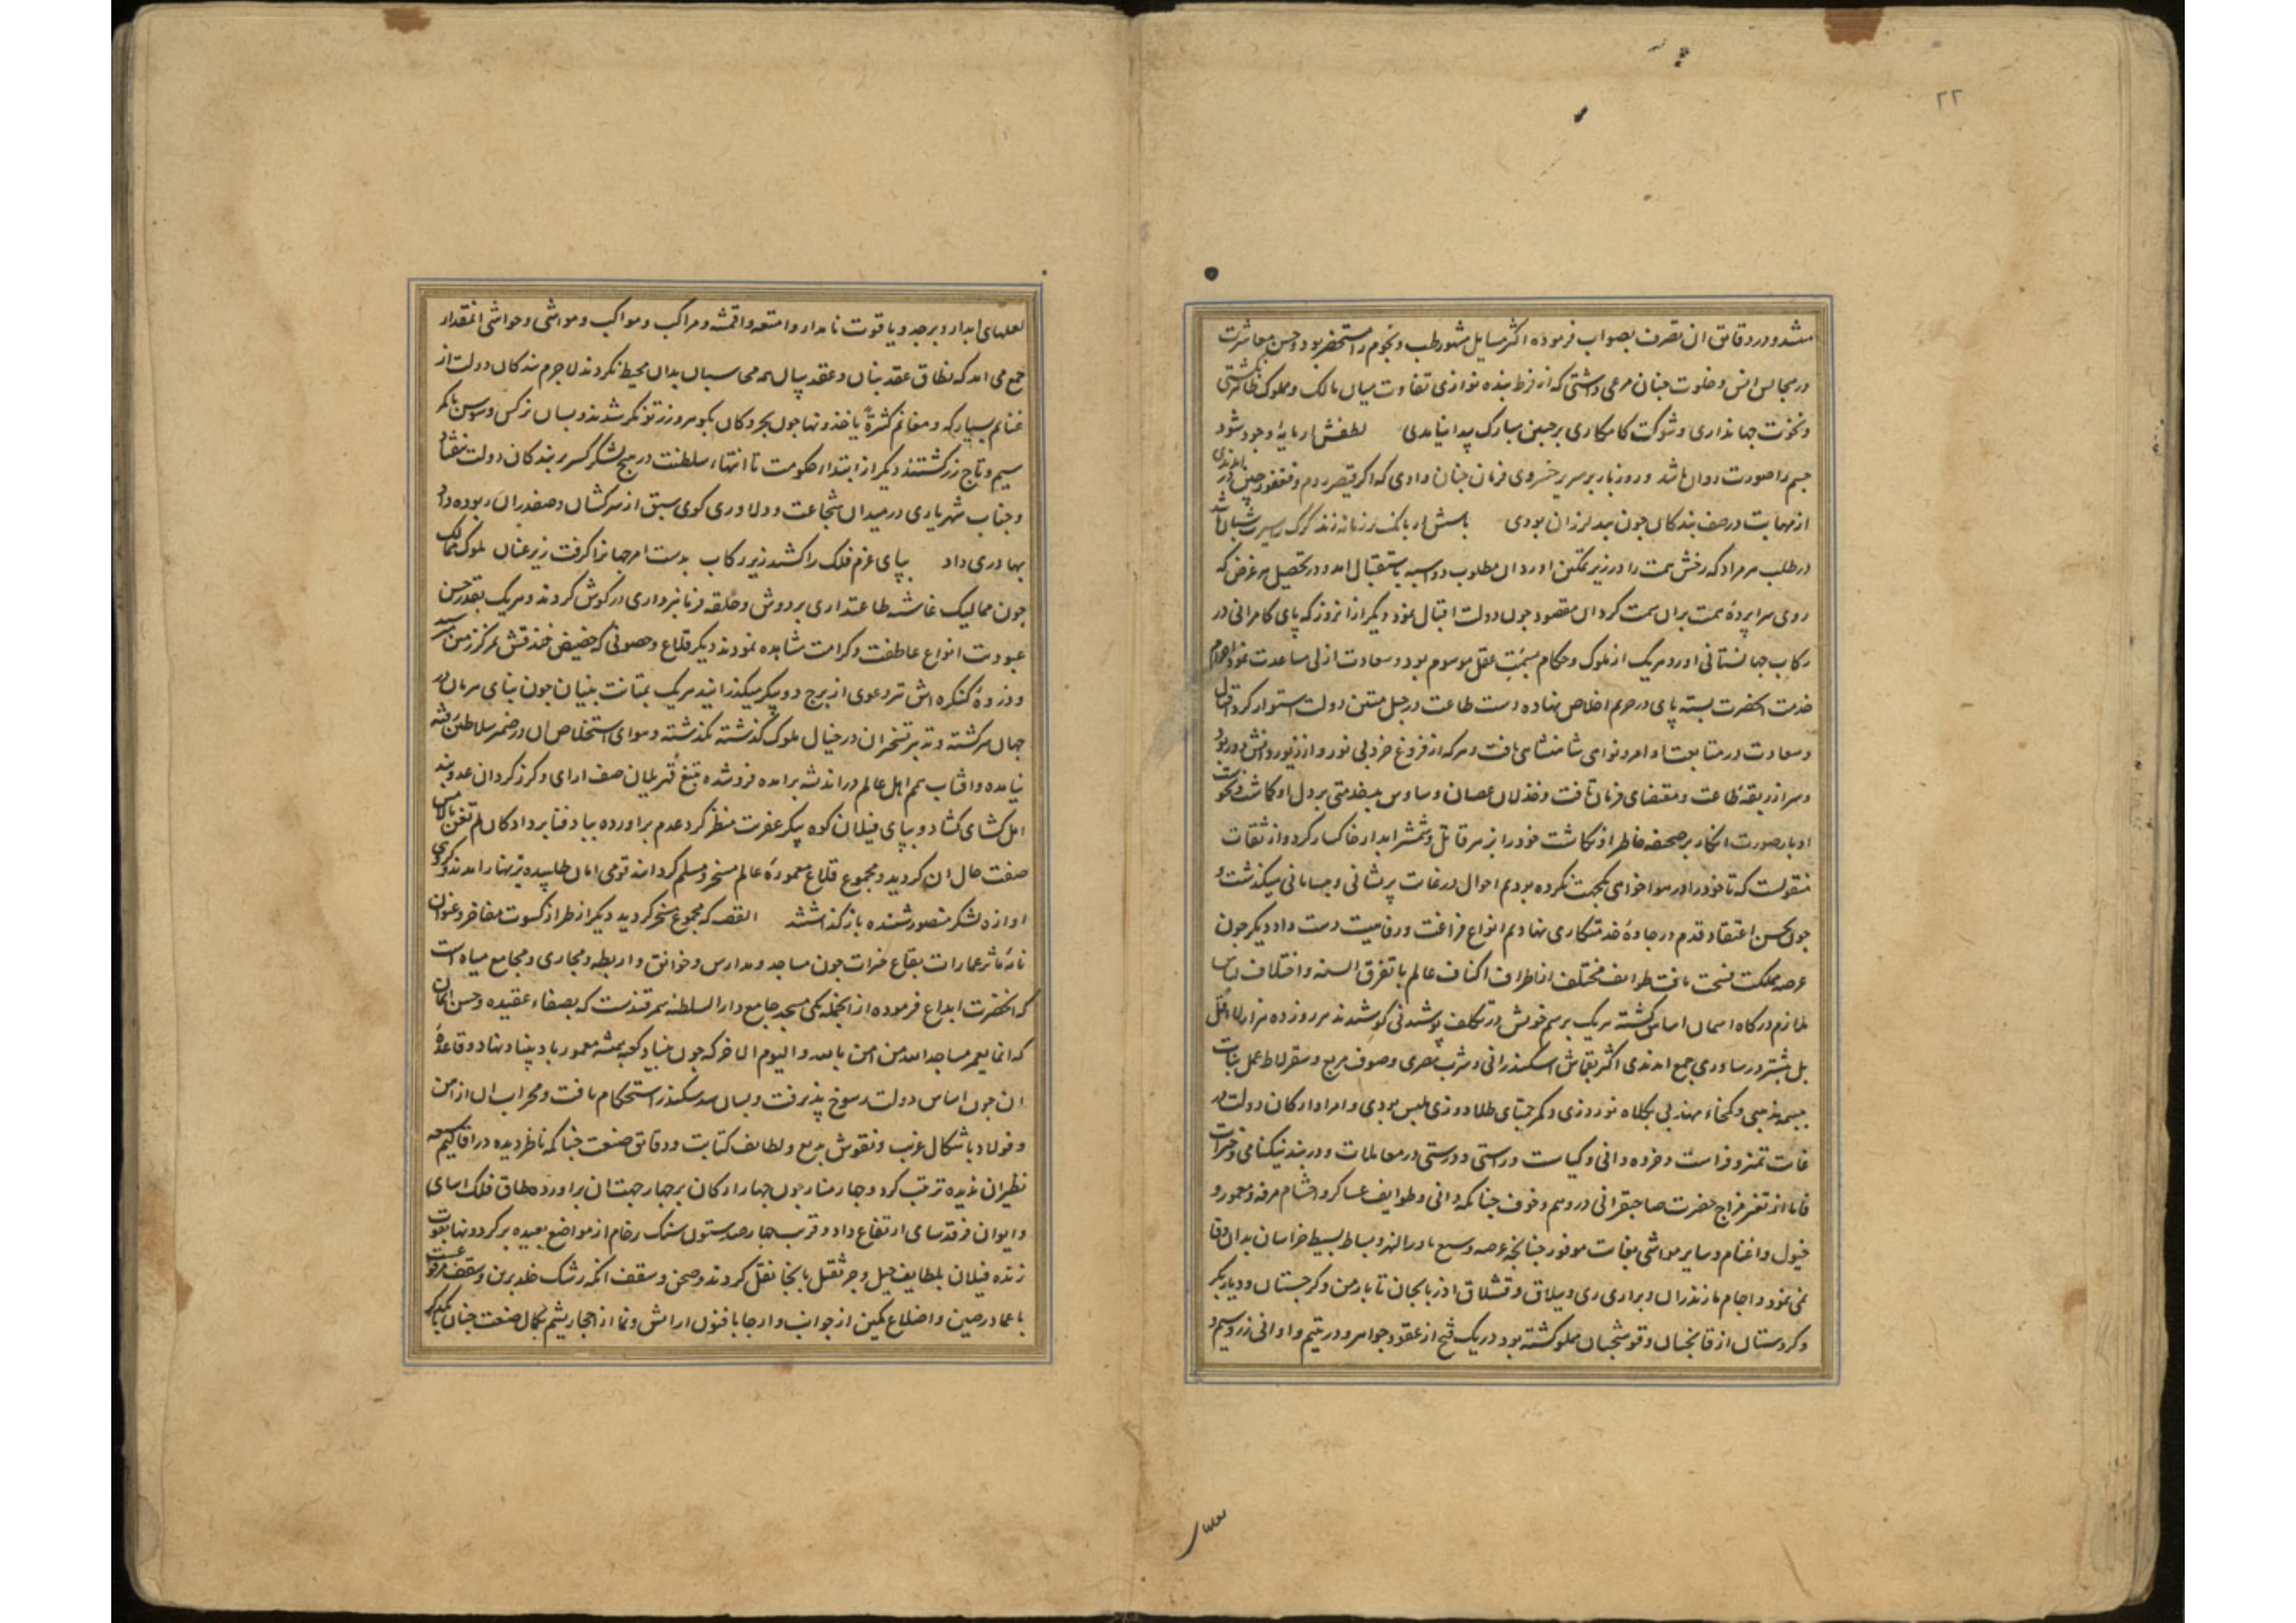 ٢٢
میشد و در دقایق ان تصرف بصواب فرموده اکثر مسایل مشهور طب و نجوم را مستحضر بود و حسن معاشرت
در مجالس انس و خلوت جنان مرعی داشتی که از فرط بنده نوازی تفاوت میان مالک و مملوک ظاهر نکشتی
و نخوت جهانداری و شوکت کامکاری بر جبین مبارک پیدا نیامدی لطفش ار مایهٔ وجود شود
جسم را صورت روان باشد و روز بار بر سریر خسروی فرمان جنان دادی که اکر قیصر روم و فغفور چین
از مهابت در صف بندکان جون بید لرزان بودی باسش ار بانک بر زمانه زند کرک را سیرت شبان باشد
در طلب هر مراد که رخش همت را در زیر تمکین اورد ان مطلوب دو اسبه باستقبال امد و در تحصیل هر غرض که
روی سرا پردهٔ همت بران سمت کرد ان مقصود جون دولت اقبال نمود دیکر از انروز که پای کامرانی در
رکاب جهانستانی اورد هر یک از ملوک و حکام بسمت عقل موسوم بود و سعادت ازلی مساعدت نمود احرام
خدمت انحضرت بسته پای در حرم اخلاص نهاده دست طاعت در حبل متین دولت استوار کرد اقبال
و سعادت در متابعت اوامر و نواهی شاهنشاهی یافت و هر که از فروغ خرد بی نور و از زیور دانش دور بود
و سر از ربقهٔ طاعت و مقتضای فرمان تافت و خذلان عصیان و ساوس بیخدمتی بر دل او کاشت و نخوت
ادبار صورت انکار بر صحیفه خاطر او نکاشت خود را بزهر قاتل و شمشیر ابدار خاکسار کرد و از ثقات
منقولست که تا خود را در هوا خواهی یکجهت نکرده بودیم احوال در غایت پریشانی و بیسامانی میکذشت و
جون بحسن اعتقاد قدم در جادهٔ خدمتکاری نهادیم انواع فراغت و رفاهیت دست داد دیکر جون
عرصه مملکت فسحت یافت طوایف مختلف از اطراف اکناف عالم با تفرق السنه و اختلاف لباس
ملازم درکاه اسمان اساس کشته هر یک برسم خویش در تکلف پوشیدنی کوشیدند هر روز ده هزار
بل بیشتر در ساوری جمع امدندی اکثر بقماش اسکندرانی و شرب مصری و صوف مربع و سقرلاط عمل بنات
غایت تمیز و فراست و خرده دانی و کیاست و راستی و درستی در معاملات و در بند نیکنامی و خیرات
فاما از تغیر مزاج حضرت صاحبقرانی در وهم و خوف جنانکه دانی و طوایف عساکر و احشام مرفه و معمور و
خیول و اغنام و سایر مواشی بغایت موفور جنانچه عرصه وسیع ماورالنهر و بساط بسیط خراسان بدان وفا
نمی نمود و اجام مازندران و براری ری و ییلاق و قشلاق اذربایجان تا بارمن و کرجستان و دیاربکر
و کردستان از قابخیان و قوشجیان مملو کشته بود دریک فتح از عقود جواهر و در یتیم و اوانی زر و سیم و
لعلهای ابدار و زبرجد و یاقوت نامدار و امتعه و اقمشه و مراکب و مواکب و مواشی و حواشی انمقدار
جمع می امد که نطاق عقد بنان و عقد بیان بدان محیط نکردند لاجرم بندکان دولت از
غنایم بسیار که و مغانم کثیرة یاخذونها جون بحر و کان بکوهر و زر توانکر شدند و بسان نرکس و سوسن با کمر
سیم و تاج زر کشتند دیکر از ابتدا حکومت تا انتهاء سلطنت در هیچ لشکر کسر بر بندکان دولت نیفتاد
و جناب شهریاری در میدان شجاعت و دلاوری کوی سبق از سرکشان و صفدران ربوده داد
بهادری داد بپای عزم فلک را کشید زیر رکاب بدست امر جهانرا کرفت زیر عنان ملوک ممالک
جون ممالیک غاشیه طاعتداری بر دوش و حلقه فرمانبرداری در کوش کردند و هر یک بقدر حسن
عبودیت انواع عاطفت و کرامت مشاهده نمودند دیکر قلاع و حصونی که حضیض خندقش بمرکز زمین میرسید
و ذروهٔ کنکره اش سر دعوی از برج دو پیکر میکذرانید هر یک بمتانت بنیان جون بنای هرمان در
جهان سر کشته و تدبیر تسخیران در خیال ملوک کذشته نکذشته و هوای استخلاص ان در ضمیر سلاطین رفته
نیامده و افتاب همم اهل عالم در اندیشه بر امده فروشده بتیغ قهر یلان صف ارای و کرز کردان عدو بند
اهل کشای کشاد و بپای فیلان کوه پیکر عفریت منظر کرد عدم بر اورده بباد فنا بر داد کان لم تغن بالامس
صفت حال ان کردید و مجموع قلاع معمورهٔ عالم مسخر و مسلم کرد اند قومی امان طلبیده بزنهار امدند و کروهی
اوازه لشکر منصور شنیده باز کذاشتند القصه که مجموع مسخر کردید دیکر از طراز کسوت مفاخر و عنوان
نامهٔ ماثر عمارات بقاع خیرات جون مساجد و مدارس و خوانق و اربطه و مجاری و مجامع میاه است
که انحضرت ابداع فرموده از انجمله یکی مسجد جامع دار السلطنه سمرقندست که بصفاء عقیده و حسن ایمان
که انما یعمر مساجد الله من امن بالله و الیوم الاخر که جون بنیاد کعبه همیشه معمور باد بنیاد نهاد و قاعدهٔ
ان جون اساس دولت رسوخ پذیرفت و بسان سد سکندر استحکام یافت و محراب ان از اهن
و فولاد باشکال غریب و نقوش بدیع و لطایف کتابت و دقایق صنعت جنانکه ناظر دیده در اقالیم سبعه
نظیر ان ندیده ترتیب کرد و چار منار جون جهار ارکان بر جهار جهت ان بر اورده طاق فلک اسای
و ایوان فرقد سای ارتفاع داد و قریب جهار صد ستون سنک رخام از مواضع بعیده بر کردونها بقوت
زنده فیلان بلطایف حیل و جر ثقیل بانجا نقل کردند و صحن و سقف انکه رشک خلد برین و سقف مرفوع
با عماد رصین و اضلاع مکین از جوانب و ارجا با فنون ارایش و نما از احجار یشم بکمال صنعت جنان